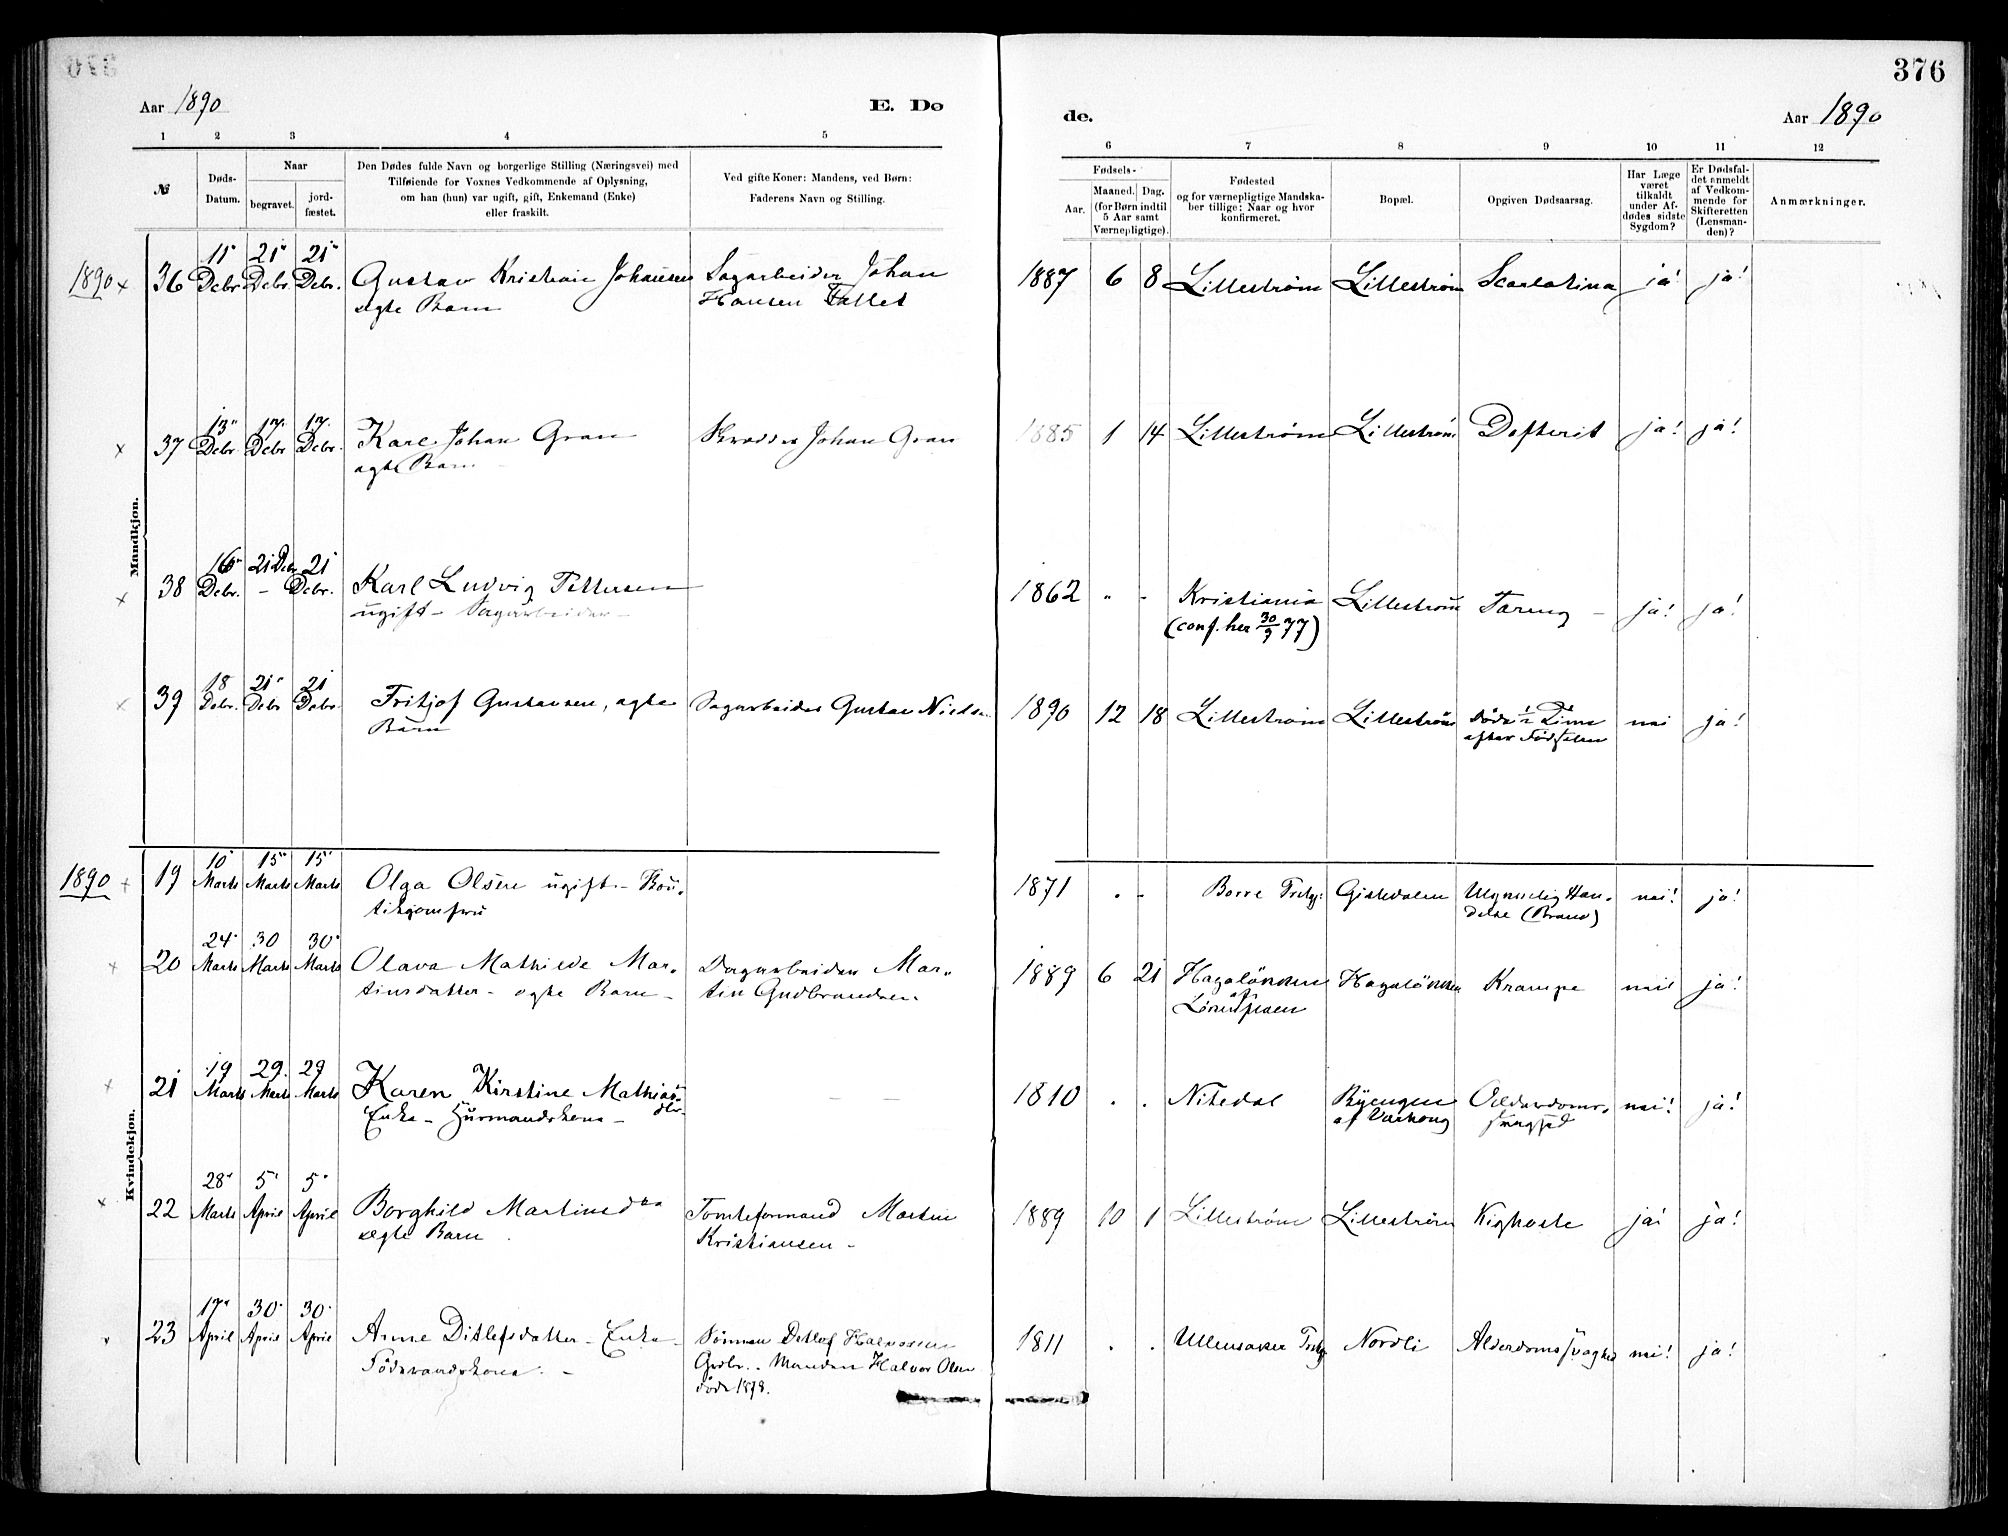 376
Aar 1890 E. Dø de. Aar 1890
1 2 3 4 5 6 7 8 9 10 11 12
№ Døds-Datum. Naar begravet. jordfæstet.
Den Dødes fulde Navn og borgerlige Stilling (Næringsvei) med
Tilføiende for Voxnes Vedkommende af Oplysning,
om han (hun) var ugift, gift, Enkemand (Enke)
eller fraskilt.
Ved gifte Koner: Mandens, ved Børn:
Faderens Navn og Stilling.
Fødsels-
Aar. Maaned. Dag.
(for Børn indtil
5 Aar samt
Værnepligtige).
Fødested
og for værnepligtige Mandska-
ber tillige: Naar og hvor
konfirmeret.
Bopæl.
Opgiven Dødsaarsag.
Har Læge
været
tilkaldt
under Af-
dødes sidste
Sygdom?
Er Dødsfal-
det anmeldt
af Vedkom-
mende for
Skifteretten
(Lensman-
den)?
Anmærkninger.
Mandkjøn.
11 21 21
1890 x 36 Debr. Debr. Debr. Gustav Kristian Johansen Sagarbeider Johan 1887 6 8 Lillestrøm Lillestrøm Scarlatina ja! ja!
ægte Barn Hansen Fallet
13 17. 17.
x 37 Debr. Debr. Debr. Karl Johan Gran Skrædder Johan Gran 1885 1 14 Lillestrøm Lillestrøm Defterit ja! ja!
ægte Barn
16 21 Debr. 21
x 38 Debr. - Debr. Karl Ludvig Pettersen 1862 " - Kristiania Lillestrøm Tæring - ja! ja!
ugift - Sagarbeider - (conf. her 30/9 77)
18 21 21
x 39 Debr. Debr. Debr. Fritjof Gustavsen, ægte Sagarbeider Gustav Nielsen 1890 12 18 Lillestrøm Lillestrøm døde 1/2 Time nei ja!
Barn efter Fødselen
Kvindekjøn.
10 15 15
1890 + 19 Marts Marts Marts Olga Olsen ugift - Bou- 1871 . - Borre Prstgj: Gistedalen Ulykkelig Hæn- nei! ja!
tikjomfru delse (Brand)
24 30 30
x 20 Marts Marts Marts Olava Mathilde Mar- Dagarbeider Mar- 1889 6 21 Hagaløkken Hagaløkken Krampe nei ja!
tinsdatter - ægte Barn - tin Gudbrandsen. af
19 29. 29
x 21 Marts Marts Marts Karen Kirstine Mathias- 1810 . . Nitedal Ryengen Alderdoms- nei! ja!
dtr. Enke - Husmandskone - af Varhoug svaghed
28 5 5
x 22 Marts April April Borghild Martinsdtr Tomteformand Martin 1889 10 1 Lillestrøm Lillestrøm Kighoste ja! ja!
ægte Barn Kristiansen -
17 30 30
23 April April April Anne Ditlefsdatter - Enke - Sønnen Detlof Halvorsen 1811 . . Ullensaker Prstgj Nordli Alderdomssvaghed nei! ja!
Födsraadskone. - Grdbr. - Manden Halvor Olsen
døde 1878.